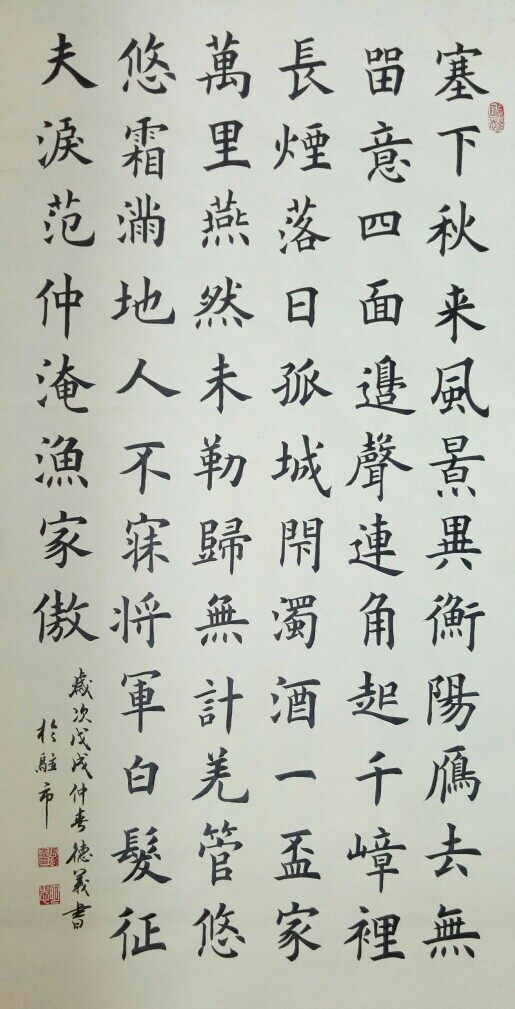 塞下秋来風景異衡陽鴈去無
畱意四面邊聲連角起千嶂裡
長煙落日孤城閇濁酒一盃家
萬里燕然未勒歸無計羌管悠
悠霜滿地人不寐将軍白髮征
夫淚范仲淹漁家傲
歲次戊戌仲春德義書
於駐市